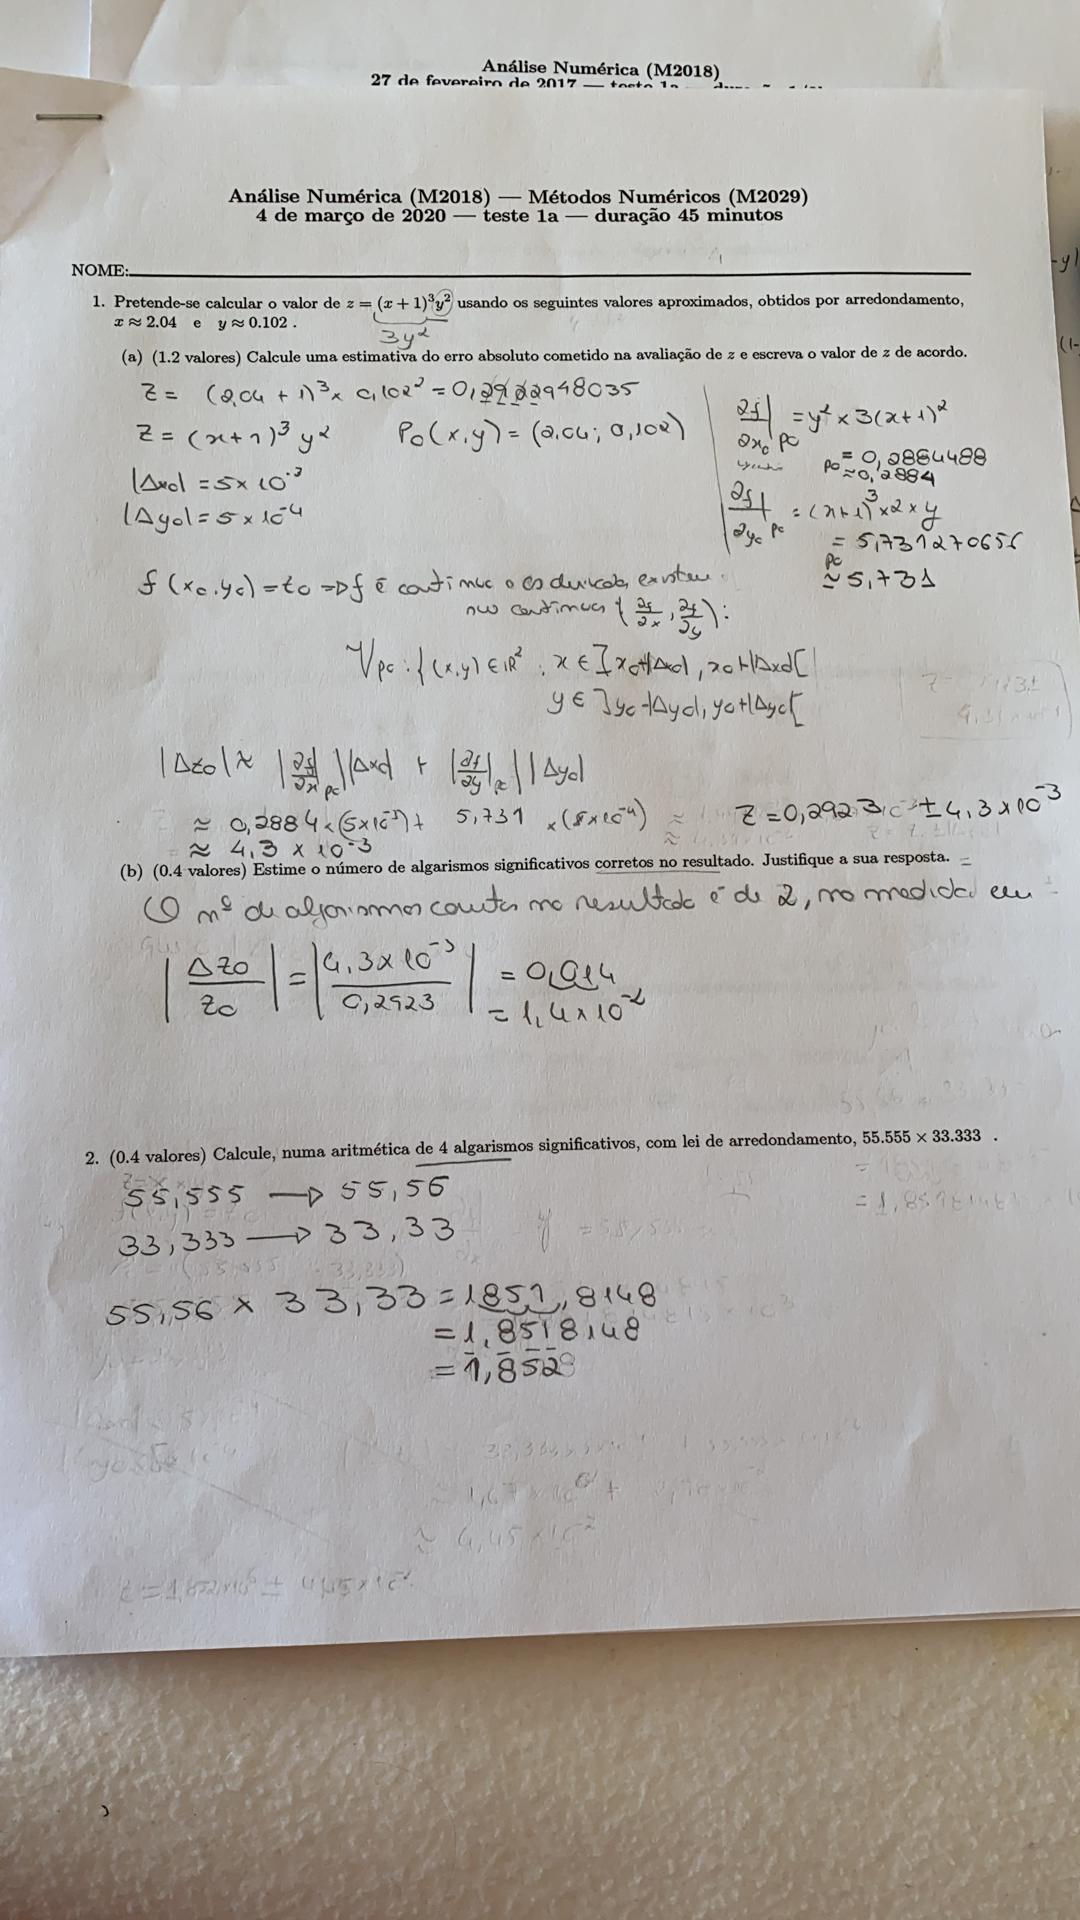 Análise Numérica (M2018)
27 de fevereiro de 2017 — teste 1a
Análise Numérica (M2018) — Métodos Numéricos (M2029)
4 de março de 2020 — teste 1a — duração 45 minutos
NOME:
1. Pretende-se calcular o valor de z = (x + 1)³y² usando os seguintes valores aproximados, obtidos por arredondamento,
x ≈ 2.04 e y ≈ 0.102 .
3y²
(a) (1.2 valores) Calcule uma estimativa do erro absoluto cometido na avaliação de z e escreva o valor de z de acordo.
Z = (2,04 + 1)³ × 0,102² = 0,2922948035
Z = (x+1)³ y² P₀(x,y) = (2,04; 0,102)
|Δx₀| = 5 × 10⁻³
|Δy₀| = 5 × 10⁻⁴
∂f/∂x₀ |P₀ = y² × 3(x+1)²
P₀ = 0,2884488
≈ 0,2884
∂f/∂y₀ |P₀ = (x+1)³ × 2 × y
= 5,731270656
P₀
≈ 5,731
f (x₀, y₀) = z₀ => f é contínua e as derivadas existem
nos contínuas (∂f/∂x, ∂f/∂y):
V P₀ : {(x,y) ∈ ℝ² : x ∈ ]x₀+|Δx₀|, x₀+|Δx₀|[
y ∈ ]y₀-|Δy₀|, y₀+|Δy₀|[
|Δz₀| ≈ |∂f/∂x|P₀ |Δx₀| + |∂f/∂y|P₀ |Δy₀|
≈ 0,2884 × (5×10⁻³) + 5,731 × (5×10⁻⁴) ≈ Z = 0,2923 ± 4,3 × 10⁻³
≈ 4,3 × 10⁻³
(b) (0.4 valores) Estime o número de algarismos significativos corretos no resultado. Justifique a sua resposta.
O nº de algarismos corretos no resultado é de 2, na medida em
que
|Δz₀/z₀| = |4,3 × 10⁻³/0,2923| = 0,014
= 1,4 × 10⁻²
2. (0.4 valores) Calcule, numa aritmética de 4 algarismos significativos, com lei de arredondamento, 55.555 × 33.333 .
55,555 → 55,56
33,333 → 33,33
55,56 × 33,33 = 1851,8148
= 1,8518148
= 1,852